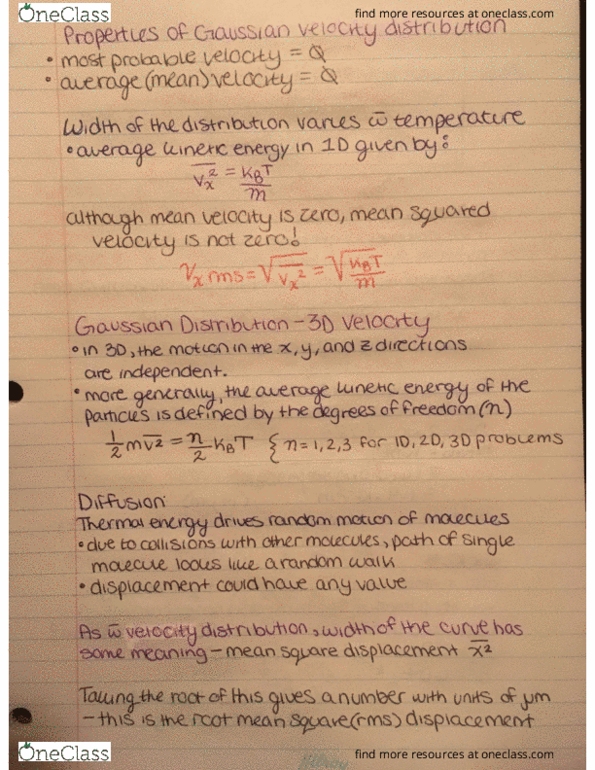 OneClass
find more resources at oneclass.com
Properties of Gaussian velocity distribution
• most probable velocity = 0
• average (mean) velocity = 0
Width of the distribution varies w̄ temperature
• average kinetic energy in 1D given by:
v̅ₓ² = k_BT/m
although mean velocity is zero, mean squared
velocity is not zero!
Vₓ rms = √v̅ₓ² = √(k_BT/m)
Gaussian Distribution - 3D Velocity
• in 3D, the motion in the x, y, and z directions
are independent.
• more generally, the average kinetic energy of the
particles is defined by the degrees of freedom (n)
½ m v̅² = n/2 k_BT { n = 1, 2, 3 for 1D, 2D, 3D problems
Diffusion
Thermal energy drives random motion of molecules
• due to collisions with other molecules, path of single
molecule looks like a random walk
• displacement could have any value
As w̄ velocity distribution, width of the curve has
some meaning - mean square displacement x̅²
Taking the root of this gives a number with units of µm
- this is the root mean square (rms) displacement
OneClass
find more resources at oneclass.com